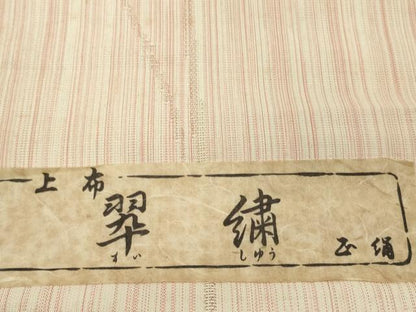 上布
翆繍
すい しゆう
正絹